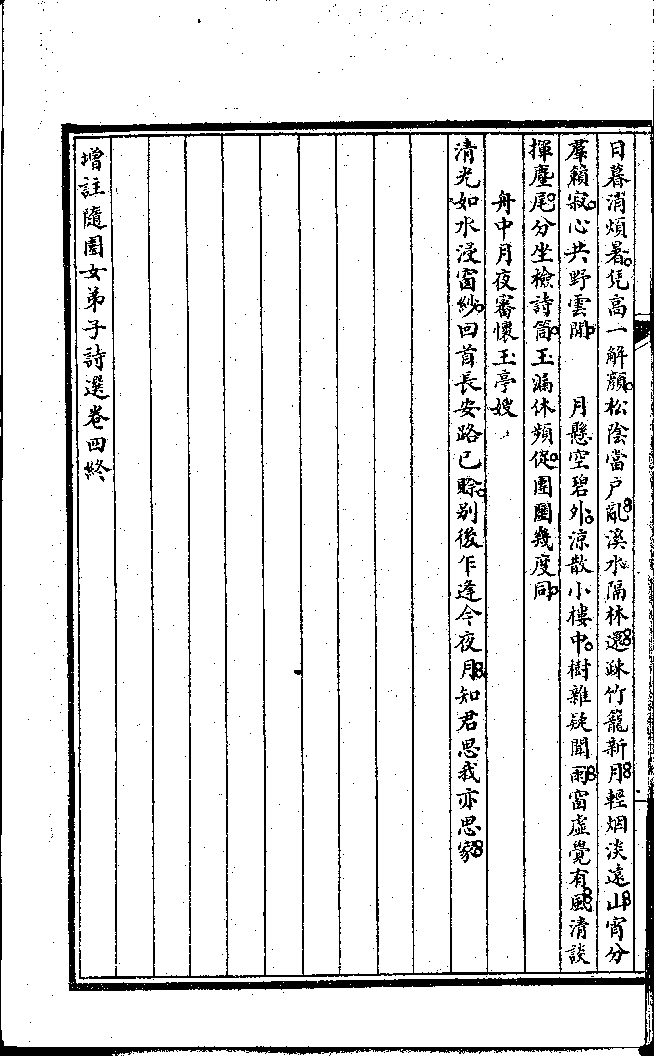 日暮消煩暑凭高一解顏松陰當戶亂溪水隔林還疎竹籠新月輕烟淡遠山宵分
羣籟寂心共野雲閒　月懸空碧外涼散小樓中樹雜疑聞雨窗虛覺有風清談
揮麈尾分坐檢詩筒玉漏休頻促團圞幾度同
舟中月夜寄懷玉亭嫂
清光如水浸窗紗回首長安路已賒別後乍逢今夜月知君思我亦思家
增註隨園女弟子詩選卷四終